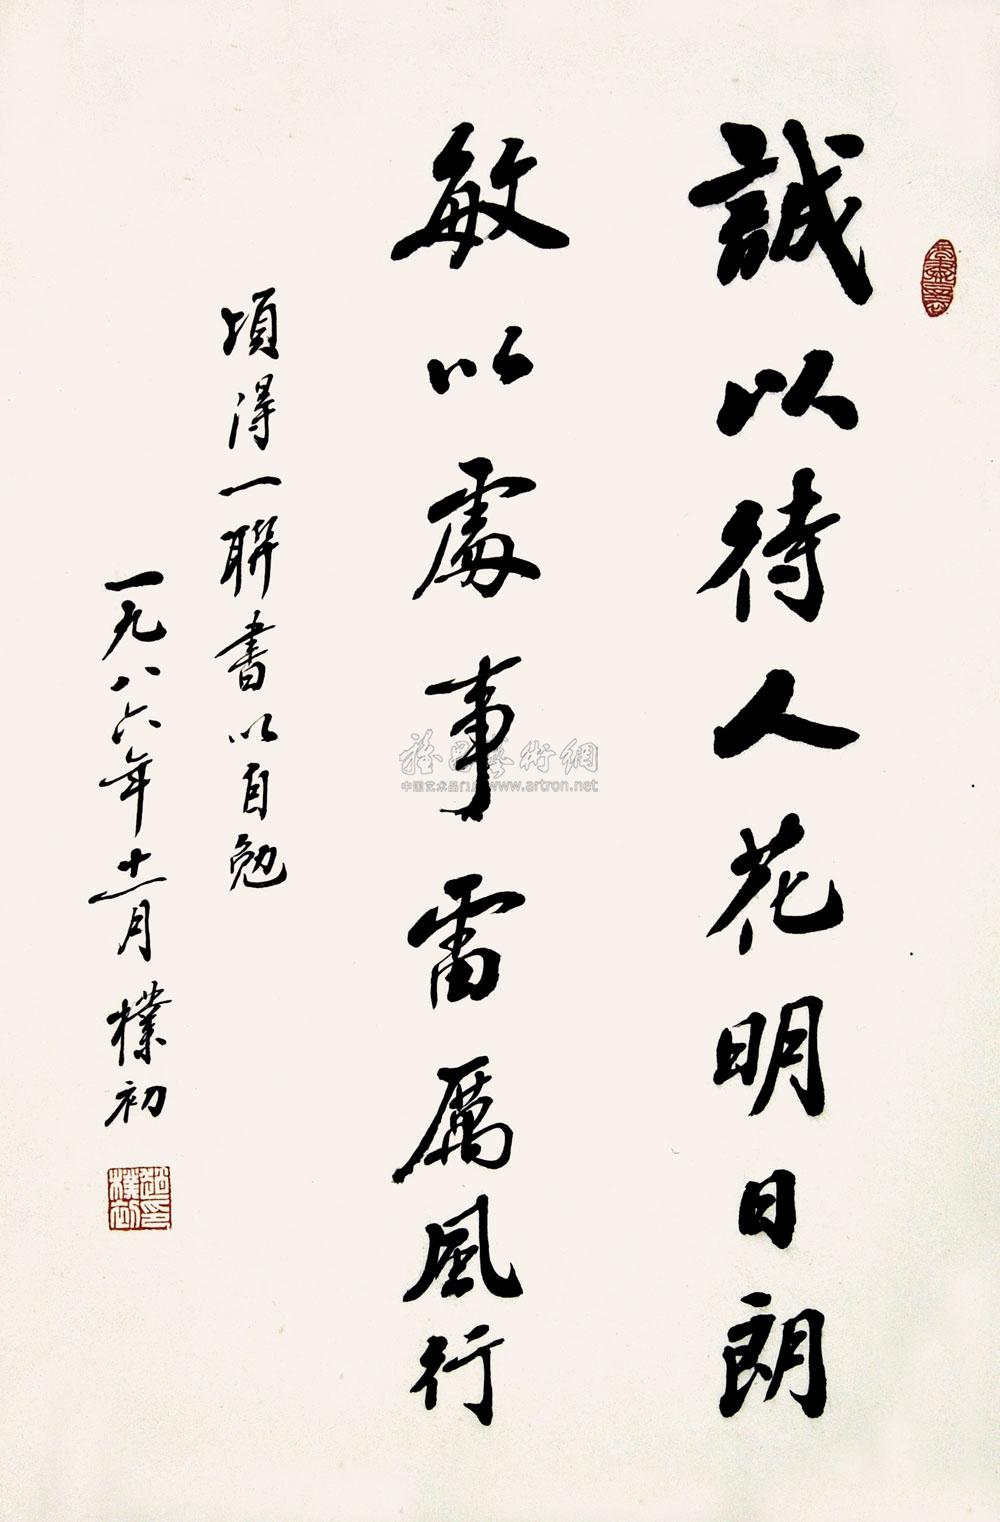 誠以待人花明日朗
敏以處事雷厲風行
頃得一聯書以自勉
一九八六年十一月 樸初
趙樸初印
中国艺术品门户 www.artron.net